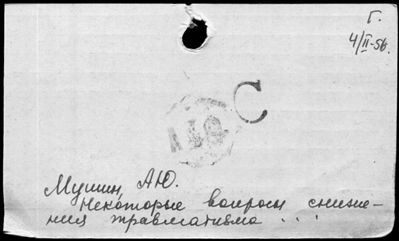 Г.
4/II-56.
С
Мушин, А.Ю.
Некоторые вопросы сниже-
ния травматизма ...